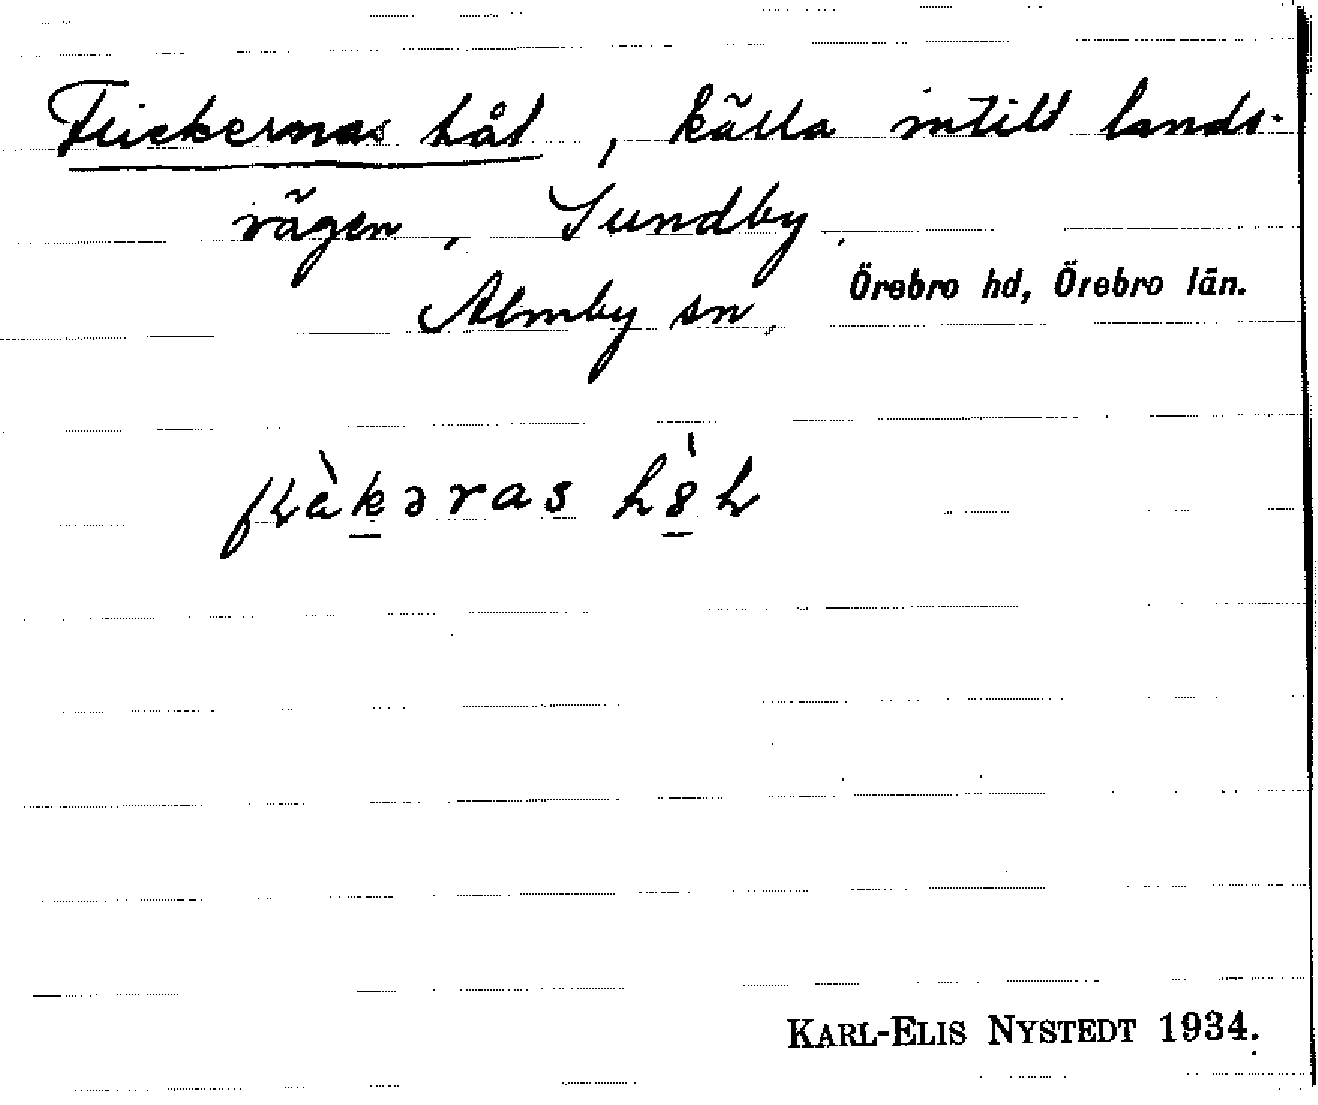 Flickernas hål, källa intill lands-
vägen, Sundby.
Almby sn. Örebro hd, Örebro län.
KARL-ELIS NYSTEDT 1934.